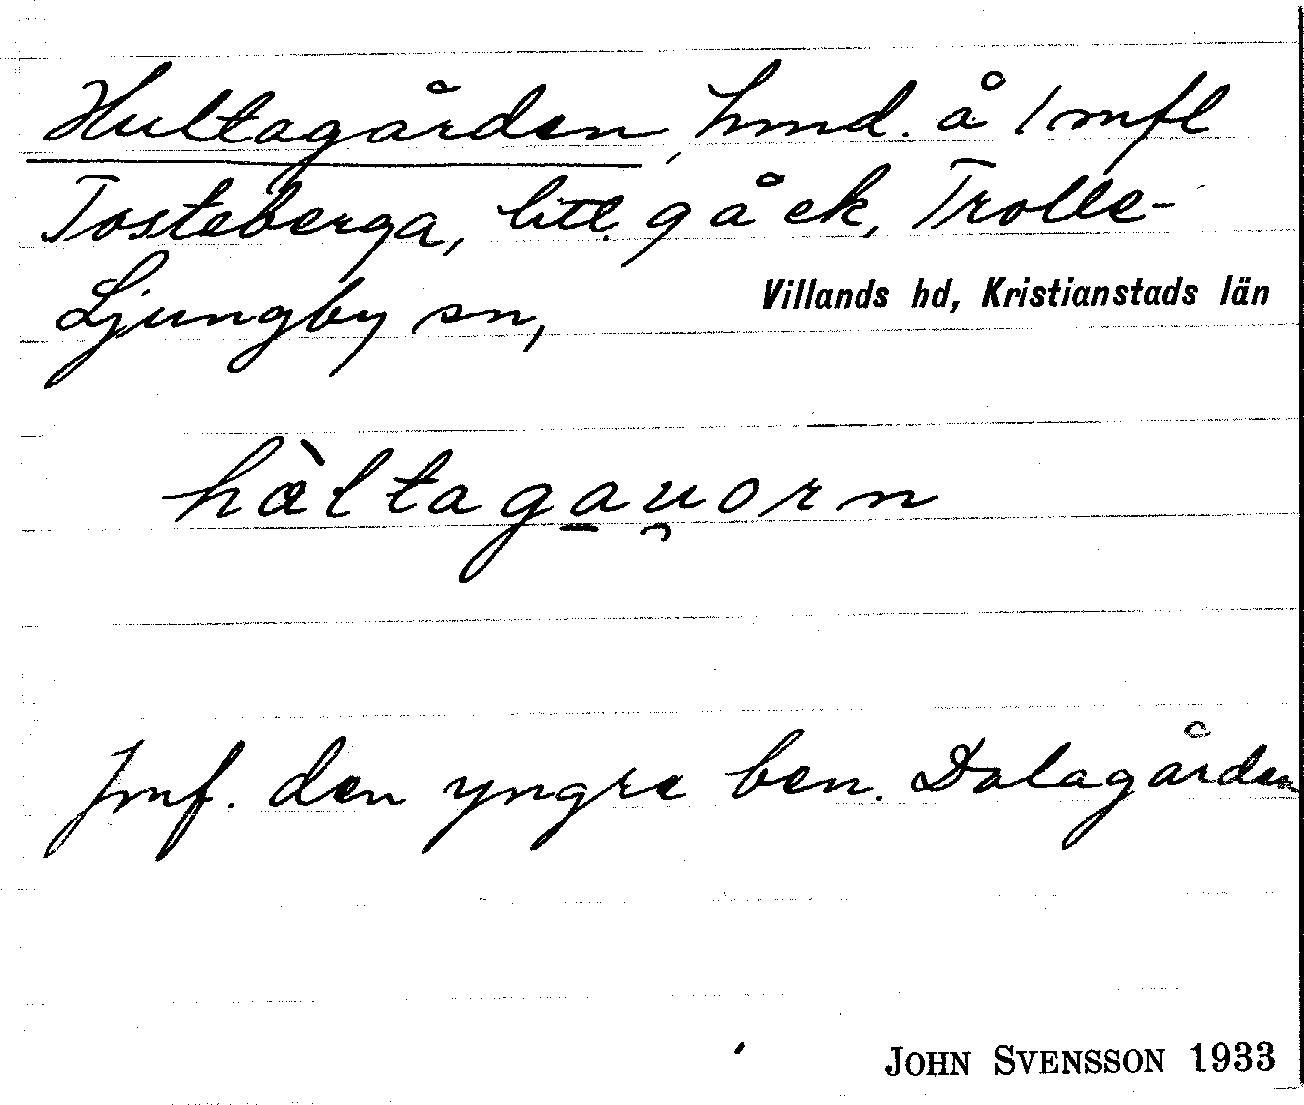 Hultagården, hmd. å 1 mfl
Tosteberga, litt. q å ek, Trolle-
Ljungby sn,
Villands hd, Kristianstads län
hæ̀ltagau̯orn
Jmf. den yngre ben. Dalagården
JOHN SVENSSON 1933